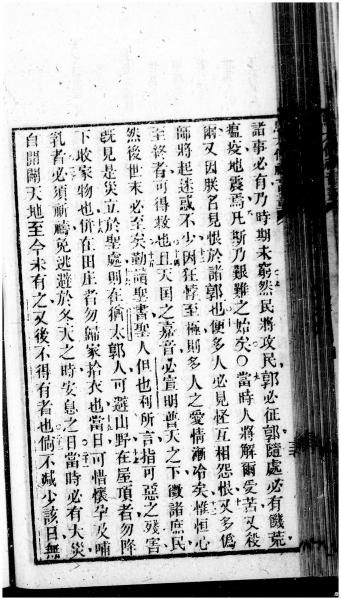 諸事必有乃時期未窮然民將攻民郭必征郭隨處必有饑荒
瘟疫地震焉凡斯乃艱難之始矣○當時人將解爾受苦又殺
爾又因朕名見恨於諸郭也便多人必見怪互相怨恨又多僞
師將起迷惑不少因狂悖至極則多人之愛情漸冷矣惟恒心
至終者可得救也且天国之嘉音必宣明普天之下徵諸庶民
然後世末必至矣勸讀聖書聖人但也利所言指可惡之殘害
既見是災立於聖處則在猶太郭人可避山野在屋頂者勿降
下收家物也併在田庄者勿歸家拾衣也當日可惜懷孕及哺
乳者必須祈禱免逃避於冬天之時安息之日當時必有大災
自開闢天地至今未有之又後不得有者也倘不减少該日無